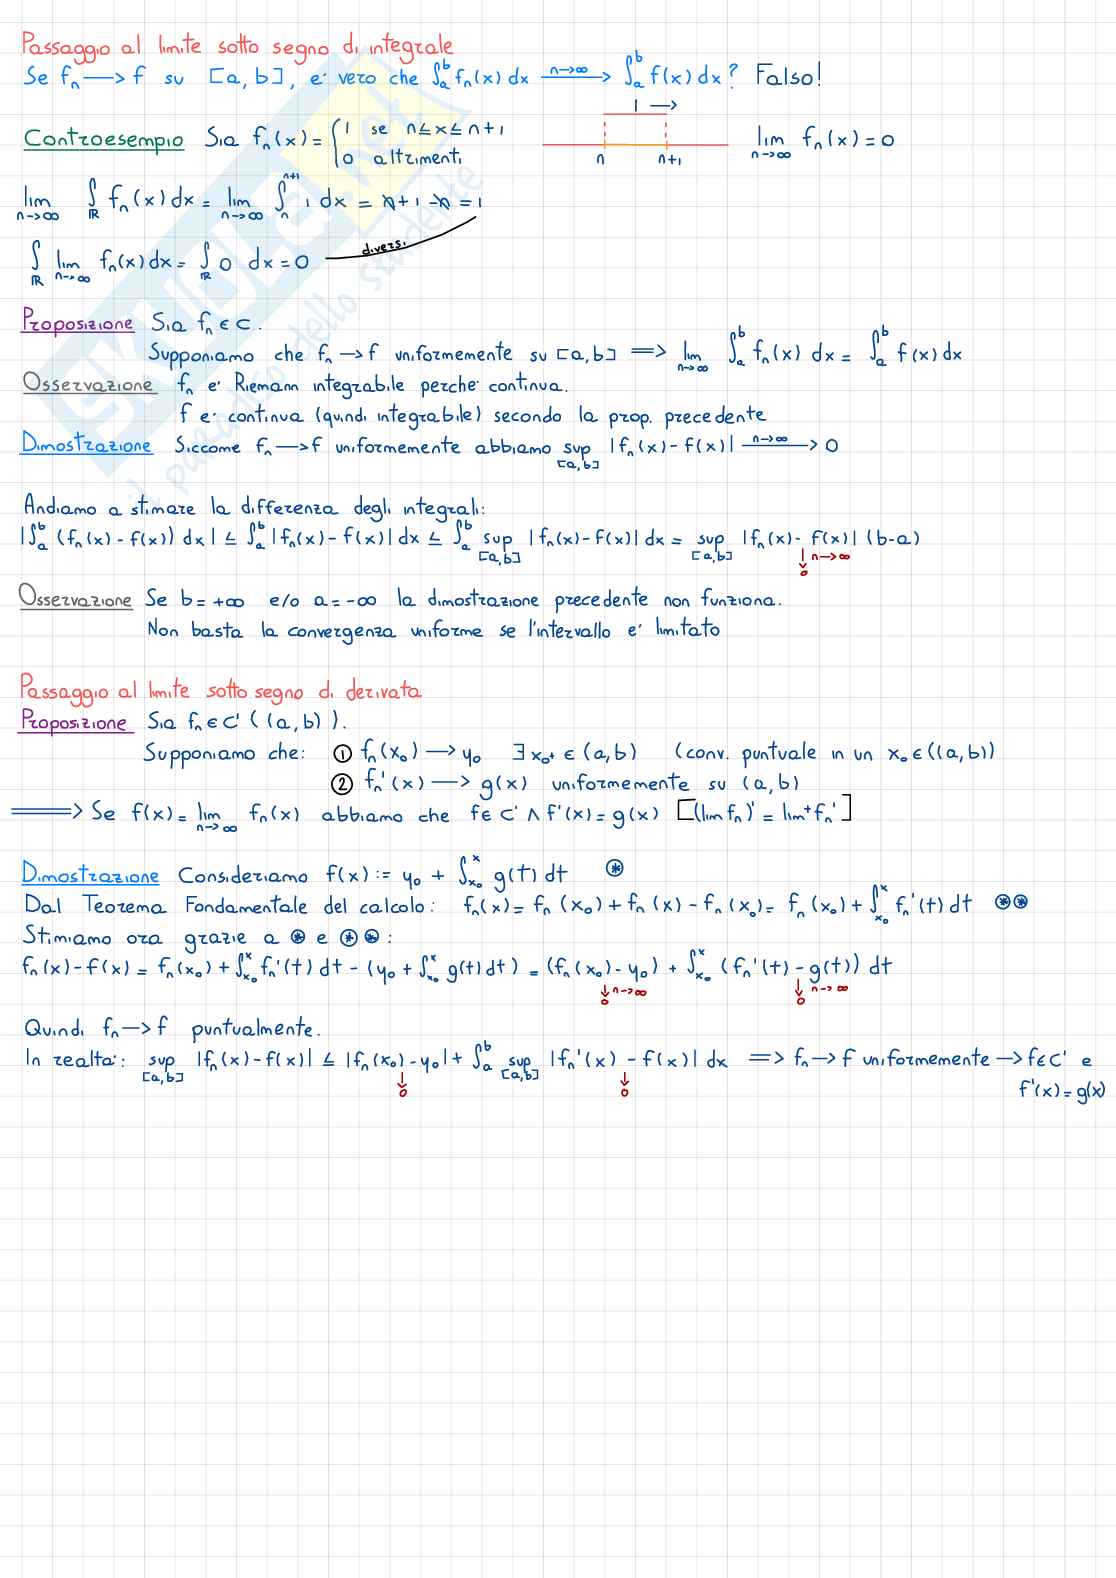 Passaggio al limite sotto segno di integrale
Se fₙ ⟶ f su [a, b], e' vero che ∫ₐᵇ fₙ(x) dx ⟶ (n→∞) ∫ₐᵇ f(x) dx? Falso!
1 →
Controesempio Sia fₙ(x) = { 1 se n ≤ x ≤ n+1
0 altrimenti
n n+1
lim n→∞ fₙ(x) = 0
lim n→∞ ∫_ℝ fₙ(x) dx = lim n→∞ ∫ₙⁿ⁺¹ 1 dx = n + 1 - n = 1
diversi
∫_ℝ lim n→∞ fₙ(x) dx = ∫_ℝ 0 dx = 0
Proposizione Sia fₙ ∈ C.
Supponiamo che fₙ → f uniformemente su [a, b] ⟹ lim n→∞ ∫ₐᵇ fₙ(x) dx = ∫ₐᵇ f(x) dx
Osservazione fₙ e' Riemann integrabile perche' continua.
f e' continua (quindi integrabile) secondo la prop. precedente
Dimostrazione Siccome fₙ ⟶ f uniformemente abbiamo sup [a,b] |fₙ(x) - f(x)| ⟶ (n→∞) 0
Andiamo a stimare la differenza degli integrali:
|∫ₐᵇ (fₙ(x) - f(x)) dx| ≤ ∫ₐᵇ |fₙ(x) - f(x)| dx ≤ ∫ₐᵇ sup [a,b] |fₙ(x) - f(x)| dx = sup [a,b] |fₙ(x) - f(x)| (b-a)
↓ n→∞
0
Osservazione Se b = +∞ e/o a = -∞ la dimostrazione precedente non funziona.
Non basta la convergenza uniforme se l'intervallo e' limitato
Passaggio al limite sotto segno di derivata
Proposizione Sia fₙ ∈ C' ((a, b)).
Supponiamo che: ① fₙ(x₀) ⟶ y₀ ∃ x₀⁺ ∈ (a, b) (conv. puntuale in un x₀ ∈ ((a, b))
② fₙ'(x) ⟶ g(x) uniformemente su (a, b)
⟹ Se f(x) = lim n→∞ fₙ(x) abbiamo che f ∈ C' ∧ f'(x) = g(x) [(lim fₙ)' = lim⁺ fₙ']
Dimostrazione Consideriamo f(x) := y₀ + ∫ₓ₀ˣ g(t) dt ⊛
Dal Teorema Fondamentale del calcolo: fₙ(x) = fₙ(x₀) + fₙ(x) - fₙ(x₀) = fₙ(x₀) + ∫ₓ₀ˣ fₙ'(t) dt ⊛⊛
Stimiamo ora grazie a ⊛ e ⊛⊛:
fₙ(x) - f(x) = fₙ(x₀) + ∫ₓ₀ˣ fₙ'(t) dt - (y₀ + ∫ₓ₀ˣ g(t) dt) = (fₙ(x₀) - y₀) + ∫ₓ₀ˣ (fₙ'(t) - g(t)) dt
↓ n→∞ ↓ n→∞
0 0
Quindi fₙ ⟶ f puntualmente.
In realta': sup [a,b] |fₙ(x) - f(x)| ≤ |fₙ(x₀) - y₀| + ∫ₐᵇ sup [a,b] |fₙ'(x) - f(x)| dx ⟹ fₙ → f uniformemente → f ∈ C' e
↓ ↓
0 0
f'(x) = g(x)
SKUOLA.net
il paradiso dello studente